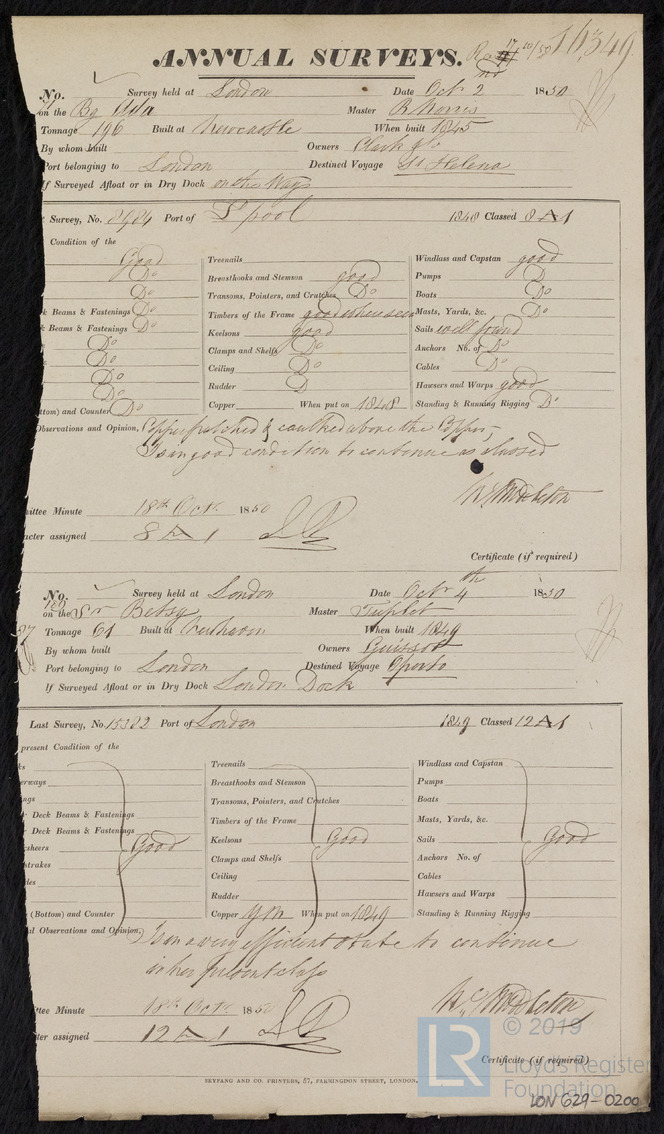 ANNUAL SURVEYS. 16,349
No. Survey held at London Date Oct 2nd 1850
on the Bg Ada Master R Norris
Tonnage 196 Built at Newcastle When built 1845
By whom built Owners Clark &Co
Port belonging to London Destined Voyage St Helena
If Surveyed Afloat or in Dry Dock on the Ways
t Survey, No. Port of L'pool 1848 Classed 8 A 1
Condition of the
Good Treenails Windlass and Capstan good
Do Breasthooks and Stemson good Pumps D
Do Transoms, Pointers, and Crutches Do Boats Do
k Beams & Fastenings Do Timbers of the Frame good where seen Masts, Yards, &c. Do
k Beams & Fastenings Do Keelsons good Sails well found
Do Clamps and Shelfs Do Anchors No. of Do
Do Ceiling Do Cables Do
Do Rudder D Hawsers and Warps good
Do
ottom) and Counter Do Copper When put on 1848 Standing & Running Rigging Do
Observations and Opinion, Copper patched & caulked above the Copper,
Is in good condition to continue as classed
Middleton
ittee Minute 18th Oct 1850
acter assigned 8 A 1
Certificate (if required)
No. Survey held at London Date Octr 4th 1850
on the Sr Betsy Master Triplet
Tonnage 61 Built at When built 1849
By whom built Owners
Port belonging to London Destined Voyage Oporto
If Surveyed Afloat or in Dry Dock London Dock
Last Survey, No. 15322 Port of London 1849 Classed 12 A 1
present Condition of the
ks Treenails Windlass and Capstan
erways Breasthooks and Stemson Pumps
ngs Transoms, Pointers, and Crutches Boats
r Deck Beams & Fastenings Timbers of the Frame Masts, Yards, &c.
r Deck Beams & Fastenings Good Keelsons Good Sails Good
ksheers Clamps and Shelfs Anchors No. of
strakes Ceiling Cables
des Rudder Hawsers and Warps
(Bottom) and Counter Copper YM When put on 1849 Standing & Running Rigging
al Observations and Opinion, Is in a very efficient state to continue
in her present class
Middleton
ttee Minute 18th Oct 1850
ter assigned 12 A 1
Certificate (if required)
SEYFANG AND CO. PRINTERS, 57, FARRINGDON STREET, LONDON.
LR © 2019
Lloyd's Register
Foundation
LON 629-0200